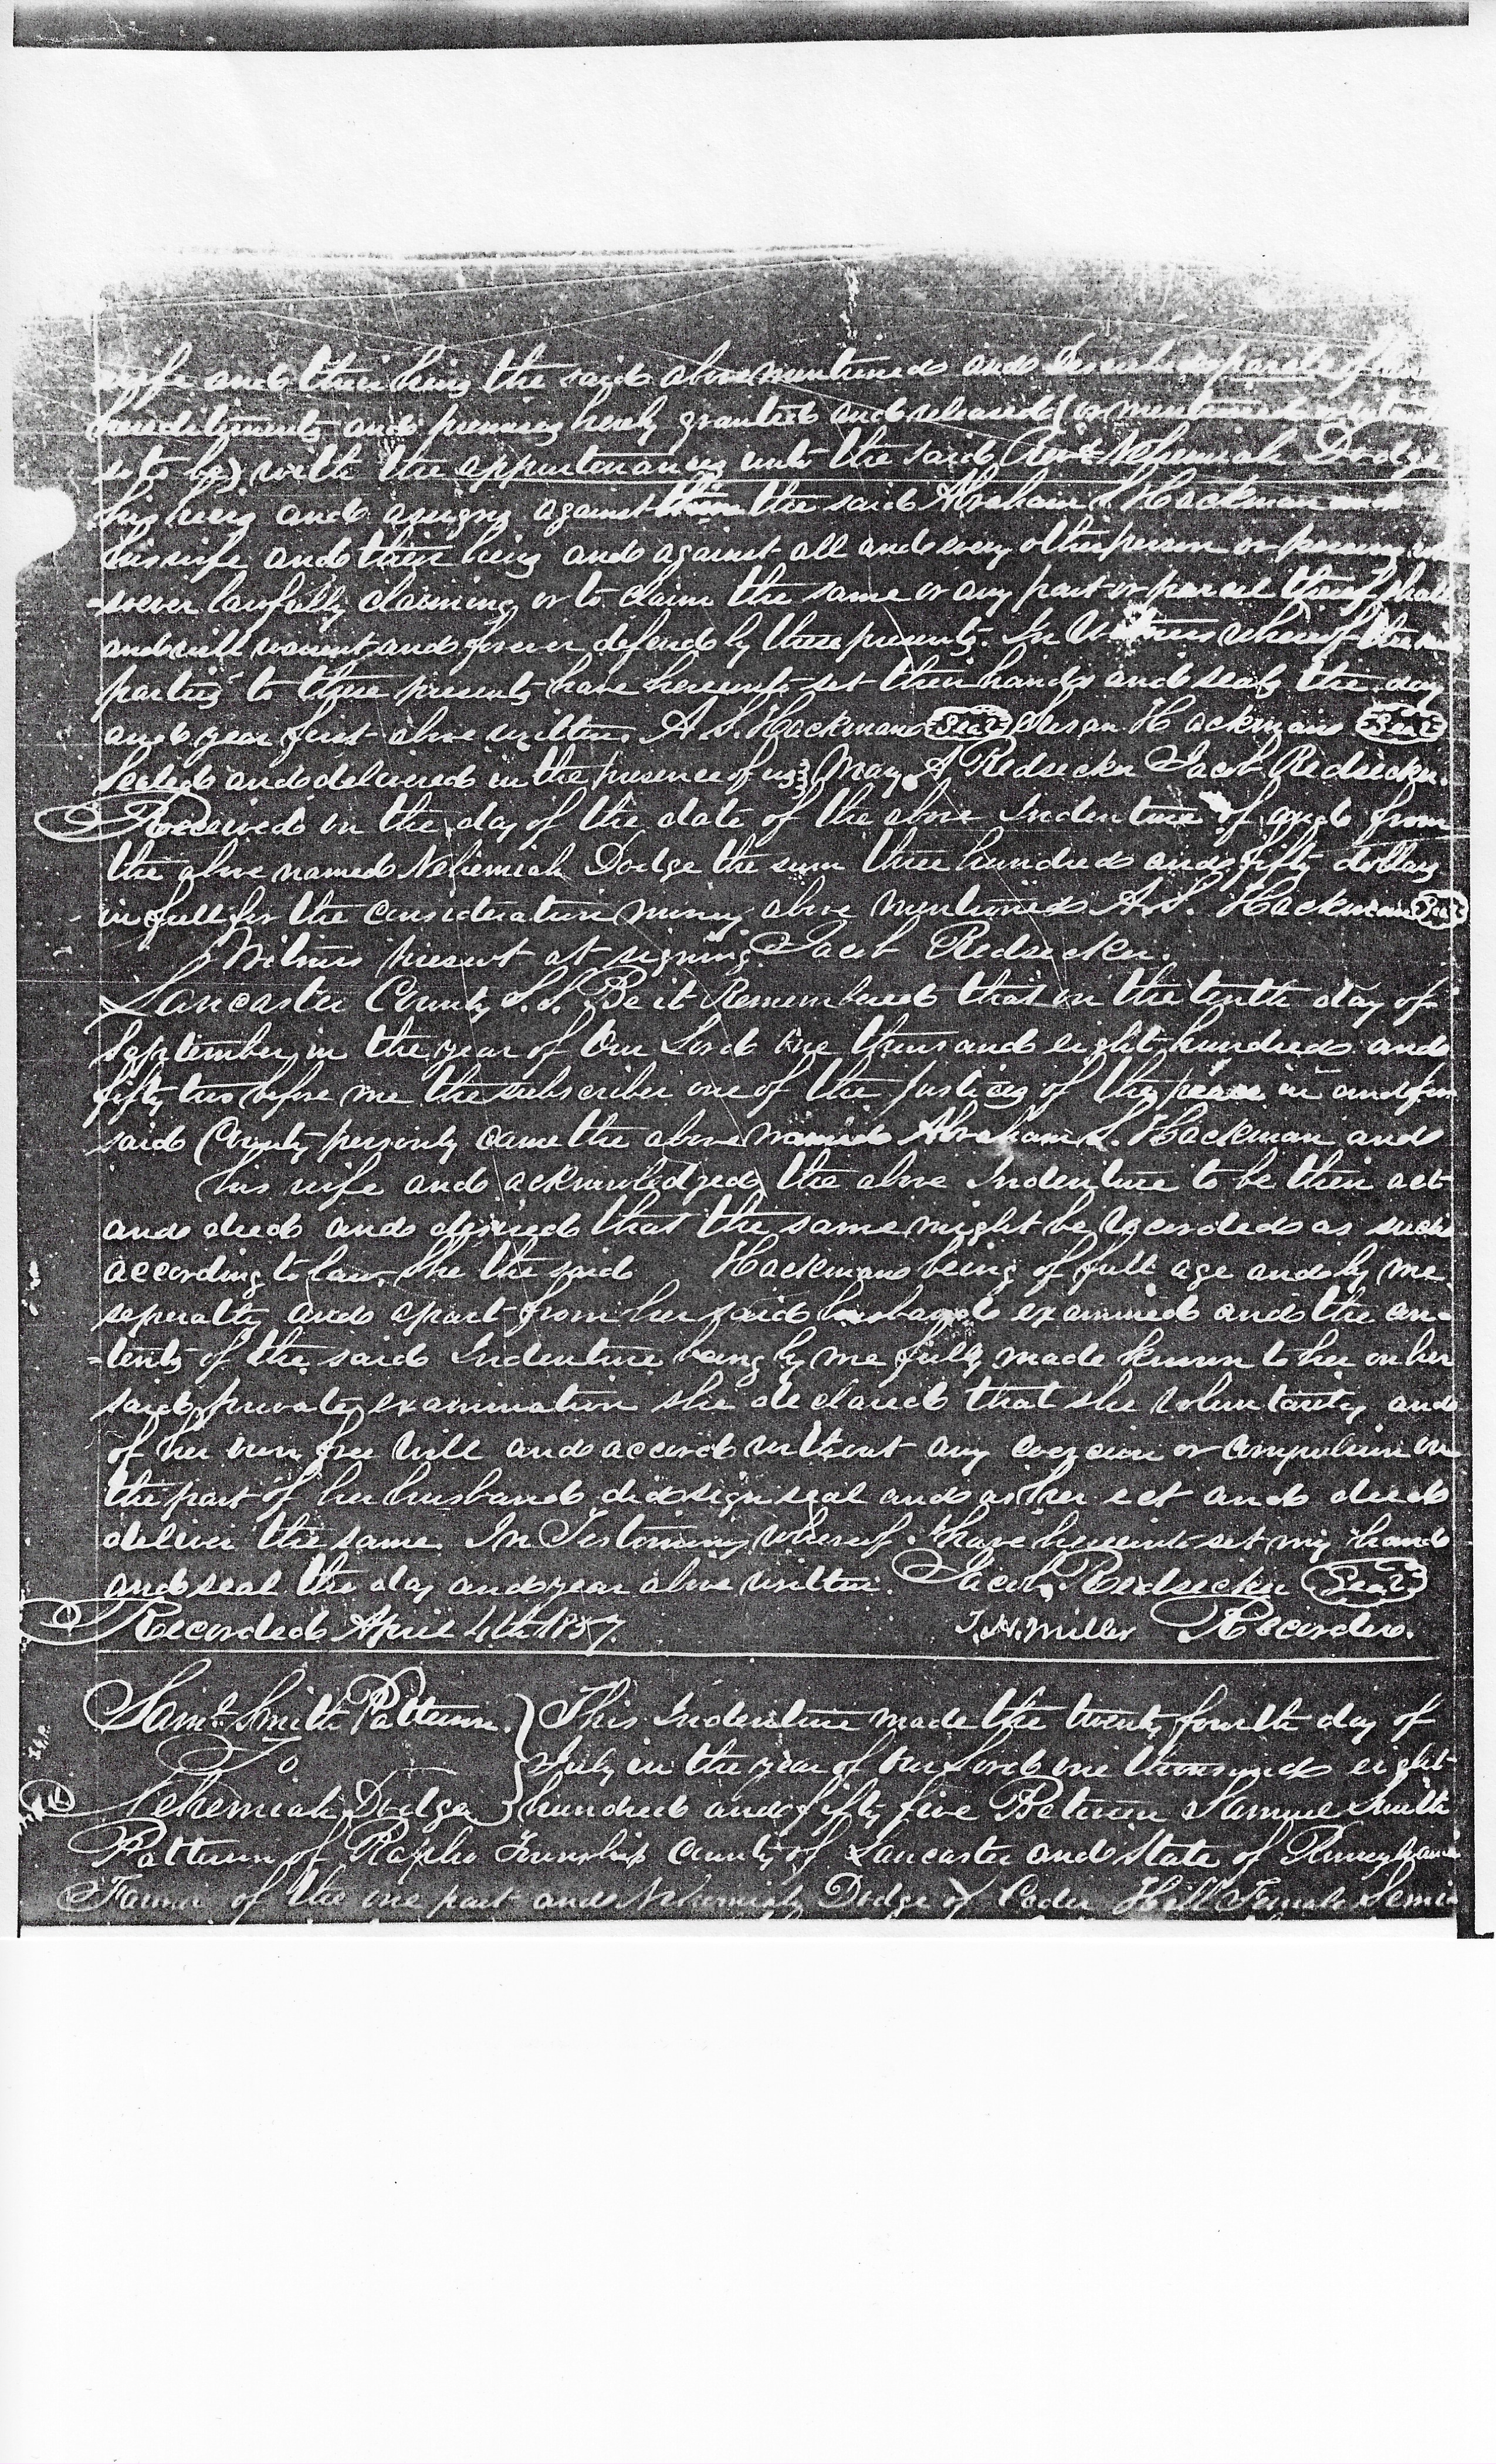 wife and their heirs the said above mentioned and Described parcels of
hereditaments and premises hereby granted and released (or mentioned
so to be) with the appurtenances unto the said Revd Nehemiah Dodge
his heirs and assigns against them the said Abraham S. Hackman and
his wife and their heirs and against all and every other person or persons
-soever lawfully claiming or to claim the same or any part or parcel thereof shall
and will warrent and forever defend by these presents. In Witness whereof the
parties to these presents have hereunto set their hands and seals the day
and year first above written. A S. Hackman Seal Susan Hackman Seal
Sealed and delivered in the presence of us Mary A Redsecker Jacob Redsecker.
Received on the day of the date of the above Indenture of and from
the above named Nehemiah Dodge the sum three hundred and fifty dollars
in full for the consideration money above mentioned A. S. Hackman Seal
Witness present at signing Jacob Redsecker.
Lancaster County S. S. Be it Remembered that on the tenth day of
September in the year of Our Lord One thousand eight hundred and
fifty two before me the subscriber one of the justices of the peace in and for
said County personly came the above named Abraham S. Hackman and
his wife and acknowledged the above Indenture to be their act
and deed and desired that the same might be recorded as such
according to law. She the said Hackman being of full age and by me
seperatly and apart from her said husband examined and the con-
-tents of the said Indenture being by me fully made known to her on her
said private examination she declared that she voluntarily and
of her own free Will and accord without any coercion or compulsion on
the part of her husband did sign seal and as her act and deed
deliver the same. In Testimony whereof I have hereunto set my hand
and seal the day and year above written. Jacob Redsecker Seal
Recorded April 4th 1857. J. H. Miller Recorder.
Saml Smith Patterson. This Indenture made the twenty fourth day of
To July in the year of our Lord one thousand eight
Nehemiah Dodge hundred and fifty five Between Samuel Smith
Patterson of Rapho Township County of Lancaster and State of Pennsylvania
Farmer of the one part and Nehemiah Dodge of Ceder Hill Female Semi